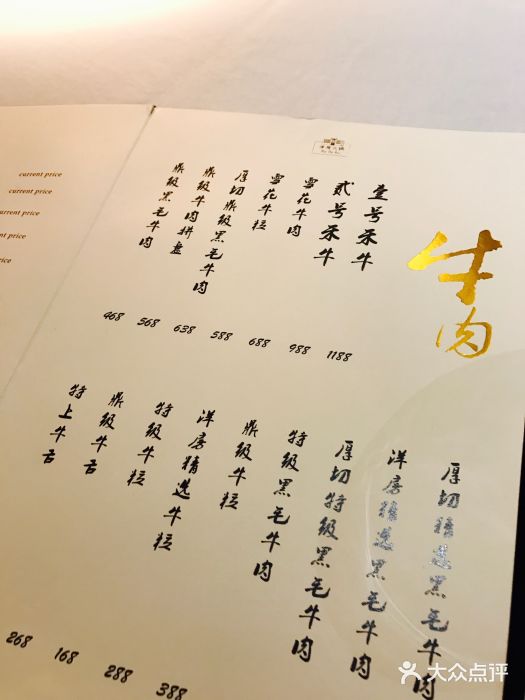 牛肉
壹号禾牛
贰号禾牛
雪花牛肉
雪花牛粒
厚切鼎级黑毛牛肉
鼎级牛肉拼盘
鼎级黑毛牛肉
1188
988
688
588
638
568
468
厚切精选黑毛牛肉
洋房精选黑毛牛肉
厚切特级黑毛牛肉
特级黑毛牛肉
鼎级牛粒
洋房精选牛粒
特级牛粒
鼎级牛舌
特上牛舌
388
288
168
268
current price
current price
current price
current price
price
大众点评